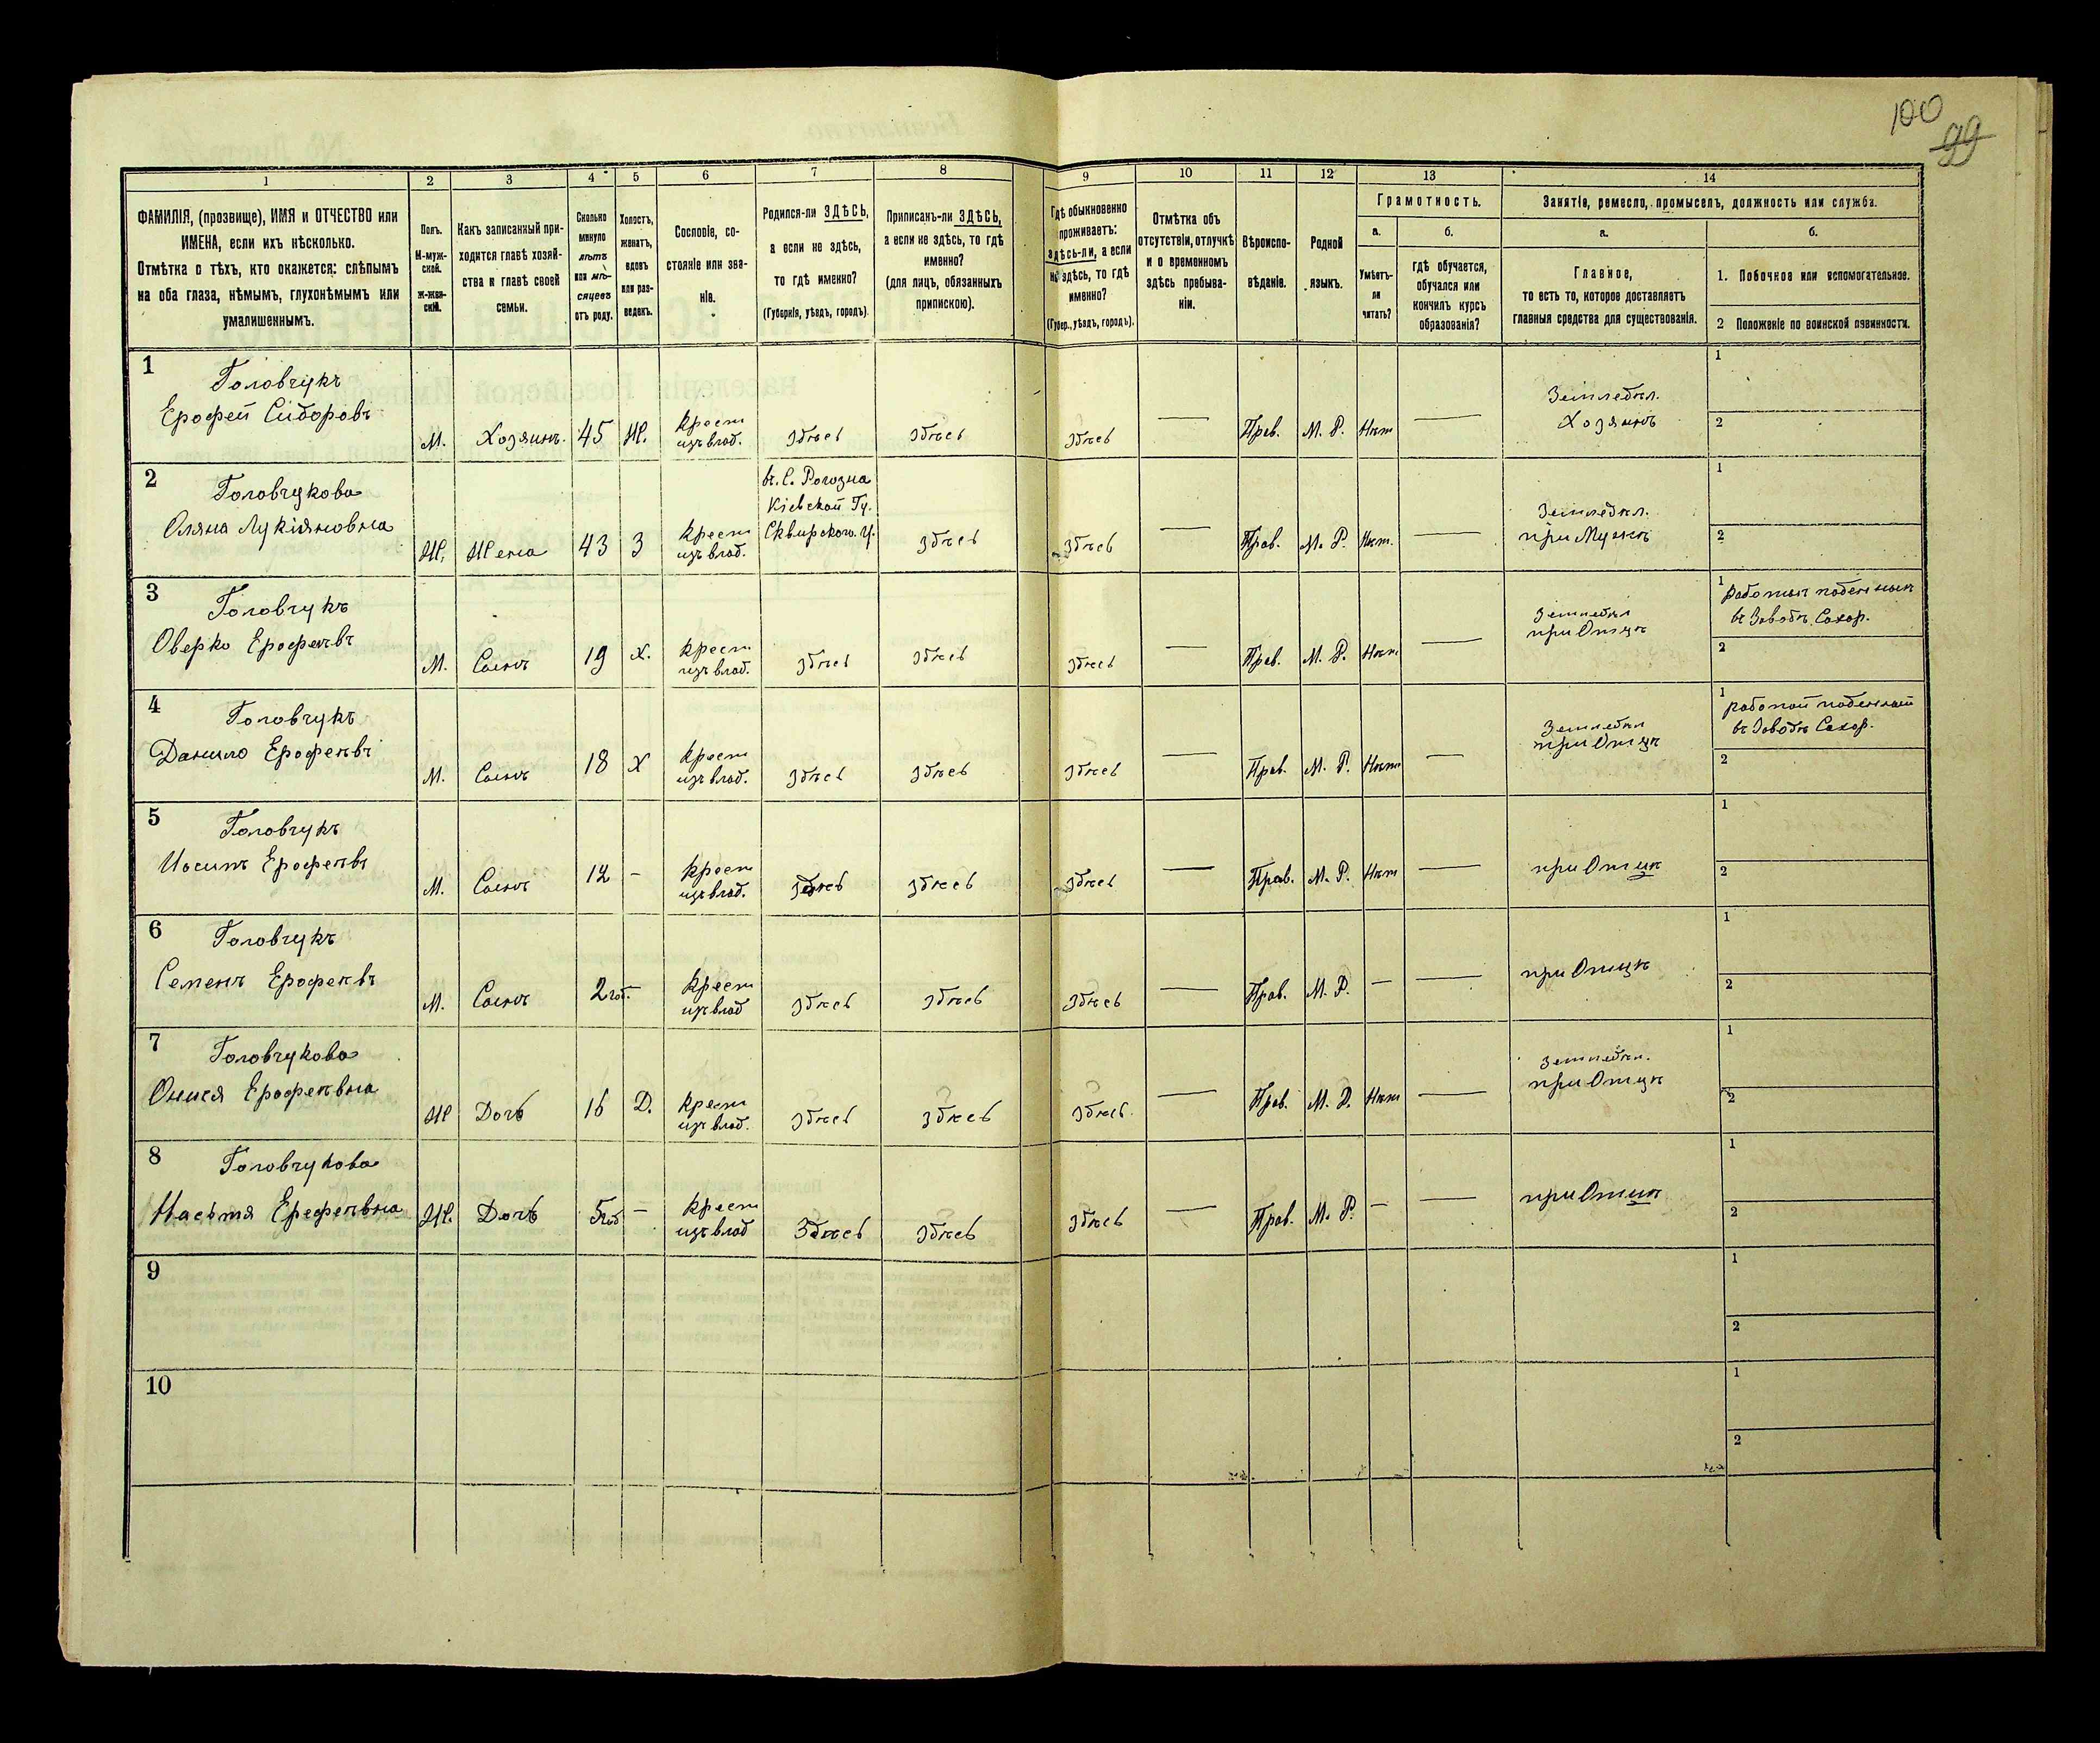 100
99
1 2 3 4 5 6 7 8 9 10 11 12 13 14
ФАМИЛІЯ, (прозвище), ИМЯ и ОТЧЕСТВО или
ИМЕНА, если ихъ нѣсколько.
Отмѣтка о тѣхъ, кто окажется: слѣпымъ
на оба глаза, нѣмымъ, глухонѣмымъ или
умалишеннымъ.
Полъ.
М-муж-
ской.
Ж-жен-
скій.
Какъ записанный при-
ходится главѣ хозяй-
ства и главѣ своей
семьи.
Сколько
минуло
лѣтъ
или мѣ-
сяцевъ
отъ роду.
Холостъ,
женатъ,
вдовъ
или раз-
веденъ.
Сословіе, со-
стояніе или зва-
ніе.
Родился-ли ЗДѢСЬ,
а если не здѣсь,
то гдѣ именно?
(Губернія, уѣздъ, городъ).
Приписанъ-ли ЗДѢСЬ,
а если не здѣсь, то гдѣ
именно?
(для лицъ, обязанныхъ
припискою).
Гдѣ обыкновенно
проживаетъ:
здѣсь-ли, а если
не здѣсь, то гдѣ
именно?
(Губер., уѣздъ, городъ).
Отмѣтка объ
отсутствіи, отлучкѣ
и о временномъ
здѣсь пребыва-
ніи.
Вѣроиспо-
вѣданіе.
Родной
языкъ.
Грамотность.
а.
Умѣетъ-
ли
читать?
б.
гдѣ обучается,
обучался или
кончилъ курсъ
образованія?
Занятіе, ремесло, промыселъ, должность или служба.
а.
Главное,
то есть то, которое доставляетъ
главныя средства для существованія.
б.
1. Побочное или вспомогательное.
2 Положеніе по воинской повинности.
1
Головчукъ
Ерофей Сидоровъ
М. Хозяинъ. 45 Ж.
крест
изъ влад.
здѣсь здѣсь здѣсь — Прав. М. Р. Нѣт —
Земледѣл.
Хозяинъ
1
2
2
Головчукова
Оляна Лукіяновна
Ж. Жена 43 З
крест
изъ влад.
въ. С. Рогозна
Кіевской Гу.
Сквирского. У.
здѣсь здѣсь — Прав. М. Р. Нѣт. —
Земледѣл.
при Мужѣ
1
2
3
Головчукъ
Оверко Ерофеѣвъ
М. Сынъ 19 х.
крест
изъ влад.
здѣсь здѣсь здѣсь — Прав. М. Р. Нѣт —
Земледѣл
при Отцѣ
1
въ Заводѣ Сахар.
2
4
Головчукъ
Данило Ерофеѣвъ
М. Сынъ 18 х
крест
изъ влад.
здѣсь здѣсь здѣсь — Прав. М. Р. Нѣт —
Земледѣл
при Отцѣ
1
въ Заводѣ Сахар.
2
5
Головчукъ
Иосипъ Ерофеѣвъ
М. Сынъ 12 —
крест
изъ влад.
здѣсь здѣсь здѣсь — Прав. М. Р. Нѣт —
при Отцѣ
1
2
6
Головчукъ
Семенъ Ерофеѣвъ
М. Сынъ 2 год. —
крест
изъ влад
здѣсь здѣсь здѣсь — Прав. М. Р. — —
при Отцѣ
1
2
7
Головчукова
Онися Ерофеѣвна
Ж Дочь 16 Д.
крест
изъ влад.
здѣсь здѣсь здѣсь. — Прав. М. Р. Нѣт —
Земледѣл.
при Отцѣ
1
2
8
Головчукова
Настя Ерефеѣвна
Ж. Дочь 5 год —
крест
изъ влад
Здѣсь здѣсь здѣсь — Прав. М. Р. — —
при Отцѣ
1
2
9
1
2
10
1
2